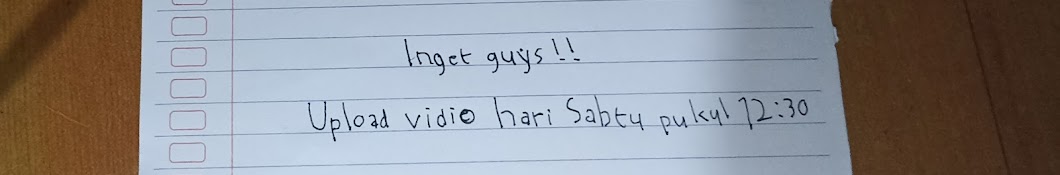 Inget guys!!
Upload vidio hari Sabtu pukul 12:30